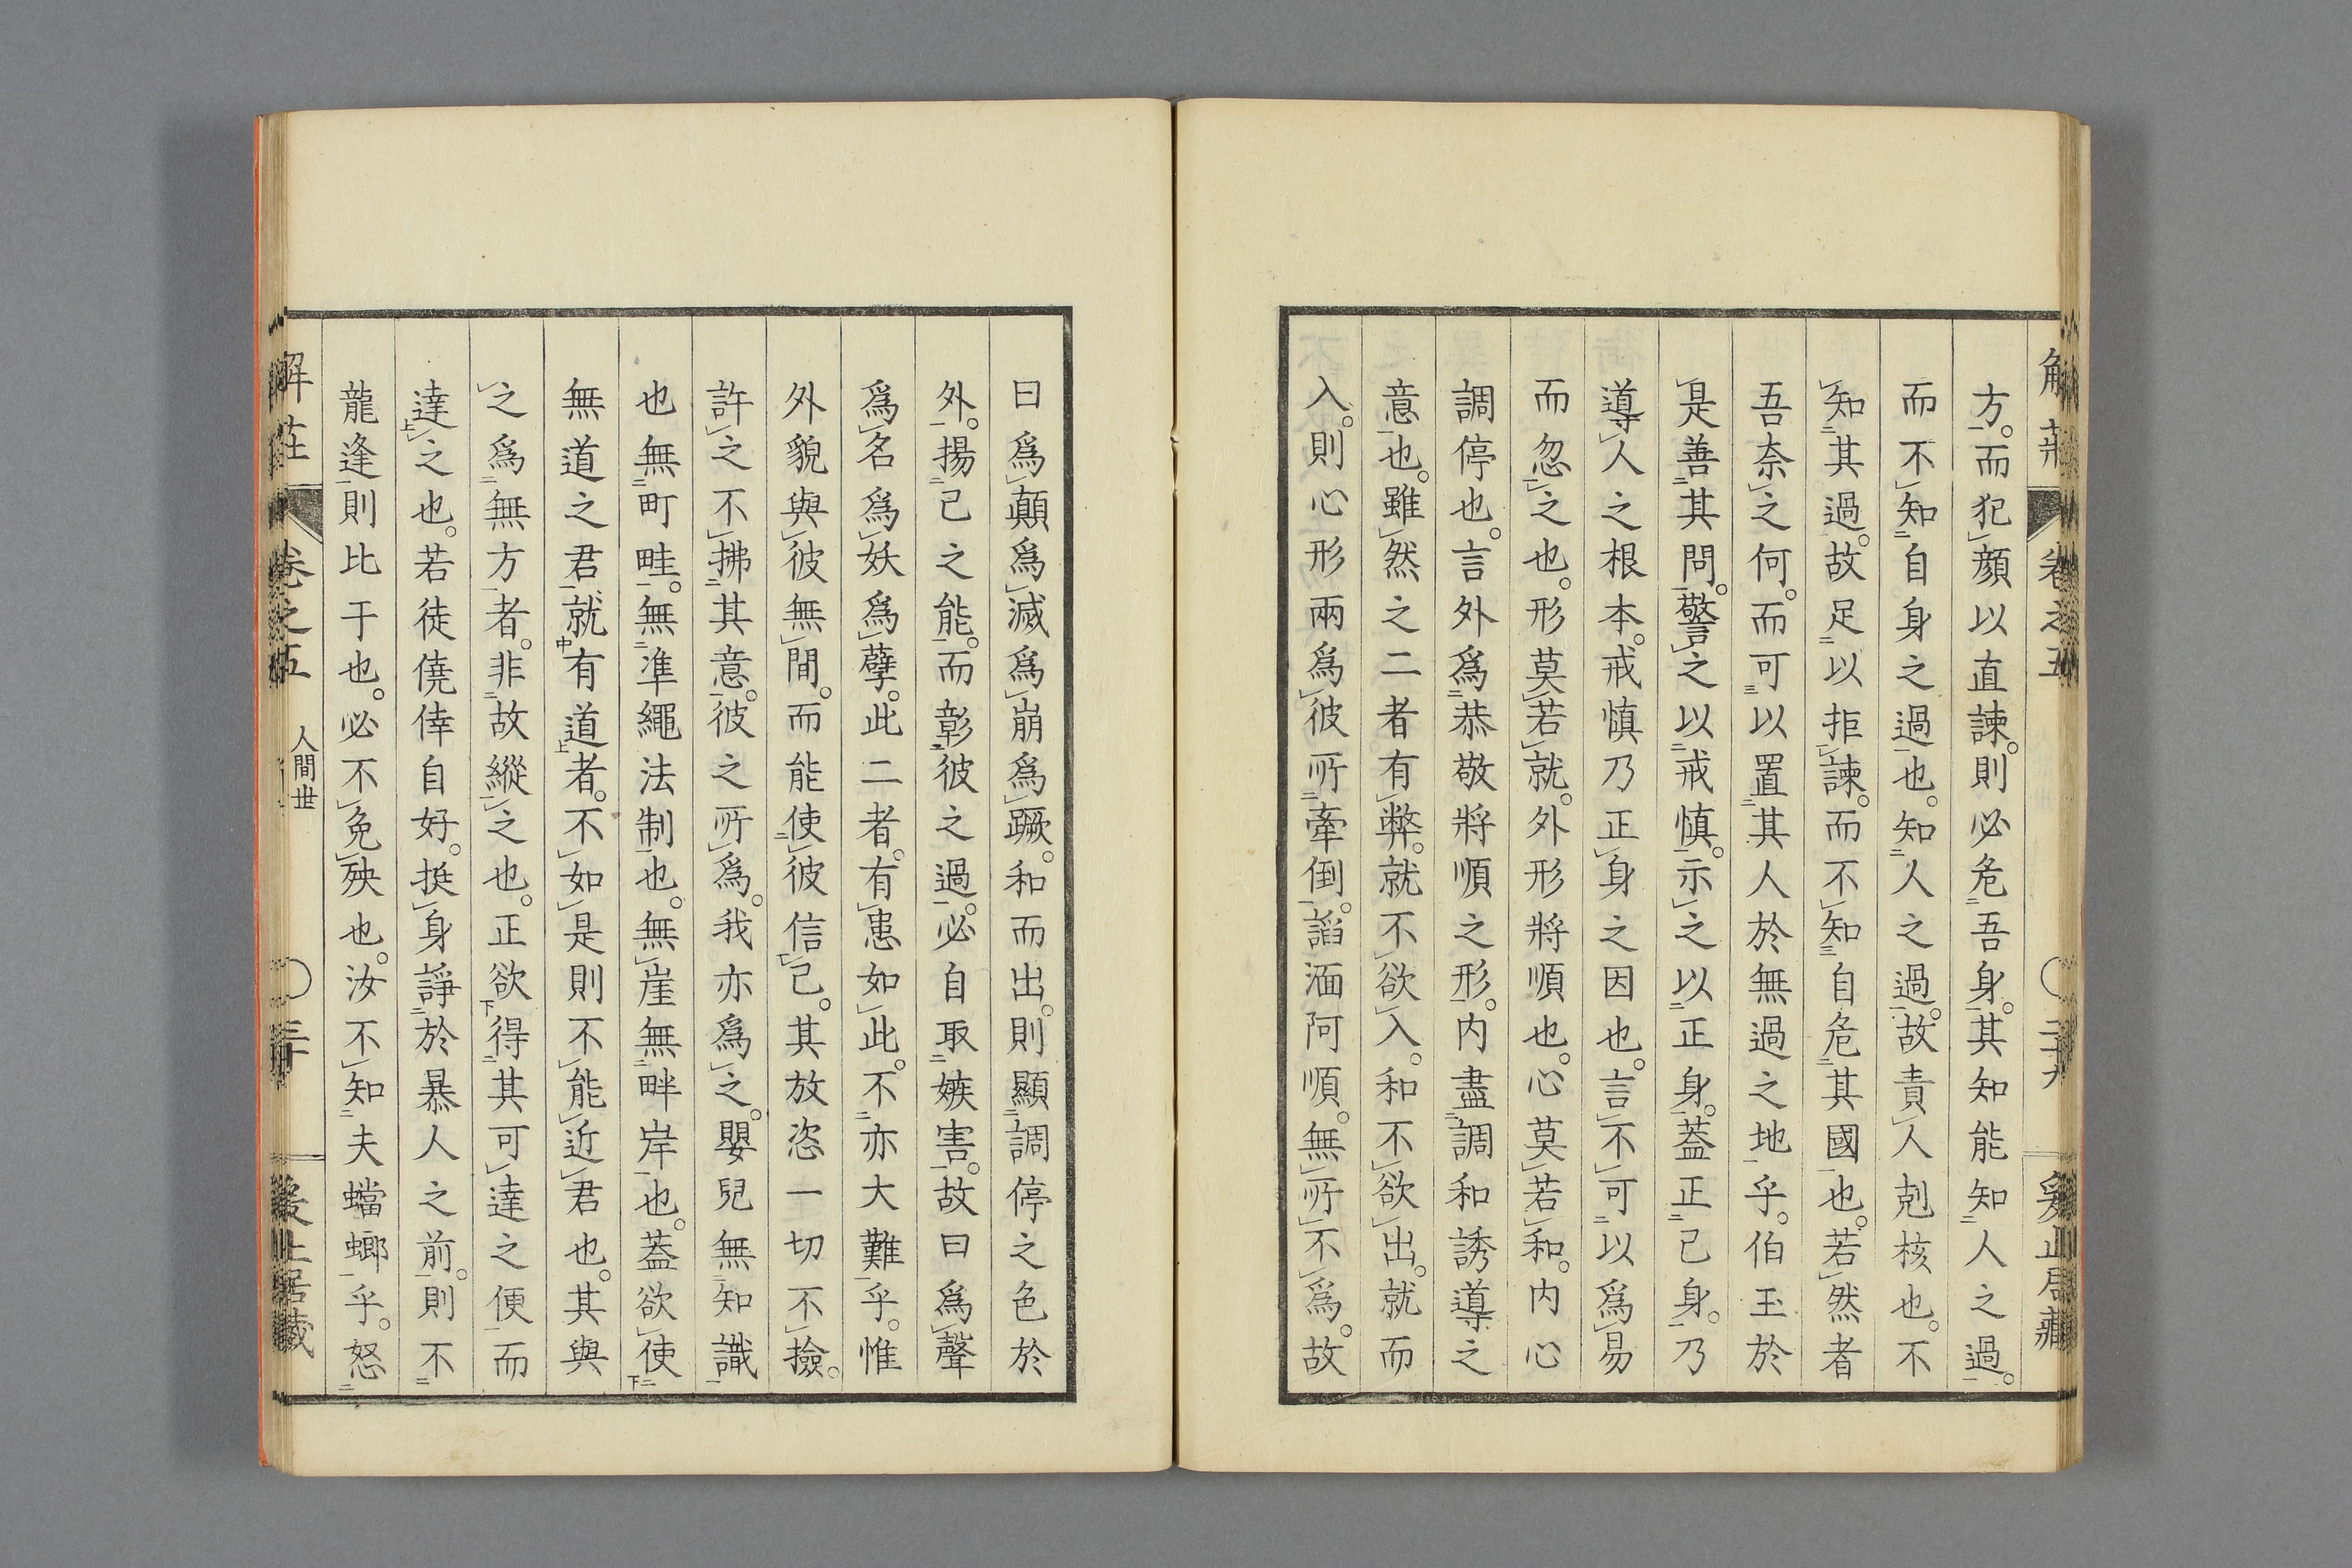 方。而犯顔以直諫。則必危吾身。其知能知人之過。
而不知自身之過也。知人之過。故責人剋核也。不
知其過。故足以拒諫。而不知自危其國也。若然者
吾奈之何。而可以置其人於無過之地乎。伯玉於
是善其問。警之以戒慎。示之以正身。蓋正己身。乃
導人之根本。戒慎乃正身之因也。言不可以爲易
而忽之也。形莫若就。外形將順也。心莫若和。内心
調停也。言外爲恭敬將順之形。内盡調和誘導之
意也。雖然之二者有弊。就不欲入。和不欲出。就而
入。則心形兩爲彼所牽倒。謟湎阿順。無所不爲。故
曰爲顛爲滅爲崩爲蹶。和而出。則顯調停之色於
外。揚己之能。而彰彼之過。必自取嫉害。故曰爲聲
爲名爲妖爲孽。此二者。有患如此。不亦大難乎。惟
外貌與彼無間。而能使彼信己。其放恣一切不撿。
許之不拂其意。彼之所爲。我亦爲之。嬰兒無知識
也無町畦。無準繩法制也。無崖無畔岸也。蓋欲使
無道之君就有道者。不如是則不能近君也。其與
之爲無方者。非故縱之也。正欲得其可達之便而
達之也。若徒僥倖自好。挺身諍於暴人之前。則不
龍逢則比干也。必不免殃也。汝不知夫蟷螂乎。怒
解莊
卷之五
人間世
三十